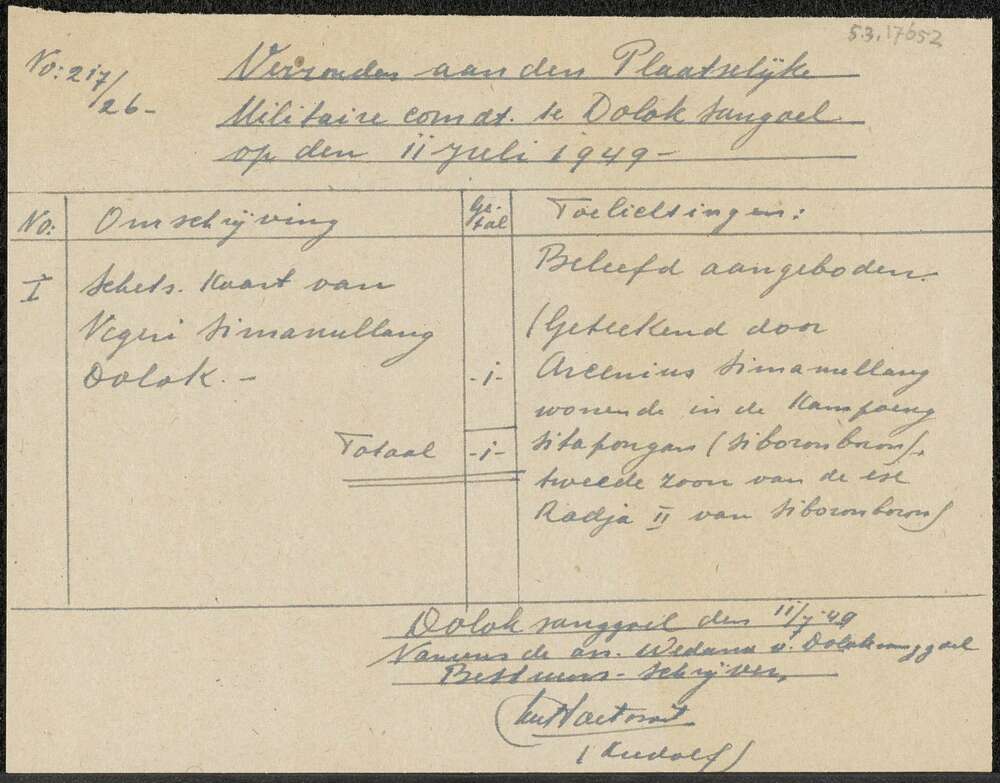 53.17652
No: 217/26-
Verzonden aan den Plaatselijke
Militaire comdt. te Dolok sangoel
op den 11 Juli 1949-
No: Omschrijving Ge-tal Toelichtingen:
I
Schets. Kaart van
Negeri Simamullang
Dolok. - -1-
Totaal -1-
Beleefd aangeboden.
(Geteekend door
Arcenius Simamullang
wonende in de Kampoeng
Sitapongan (Siboronboron),
tweede zoon van de
Radja II van Siboronboron)
Dolok sanggoel den 11/7-49
Namens de as. Wedana v. Doloksanggoel
Bestuurs-schrijver,
(Rudolf)